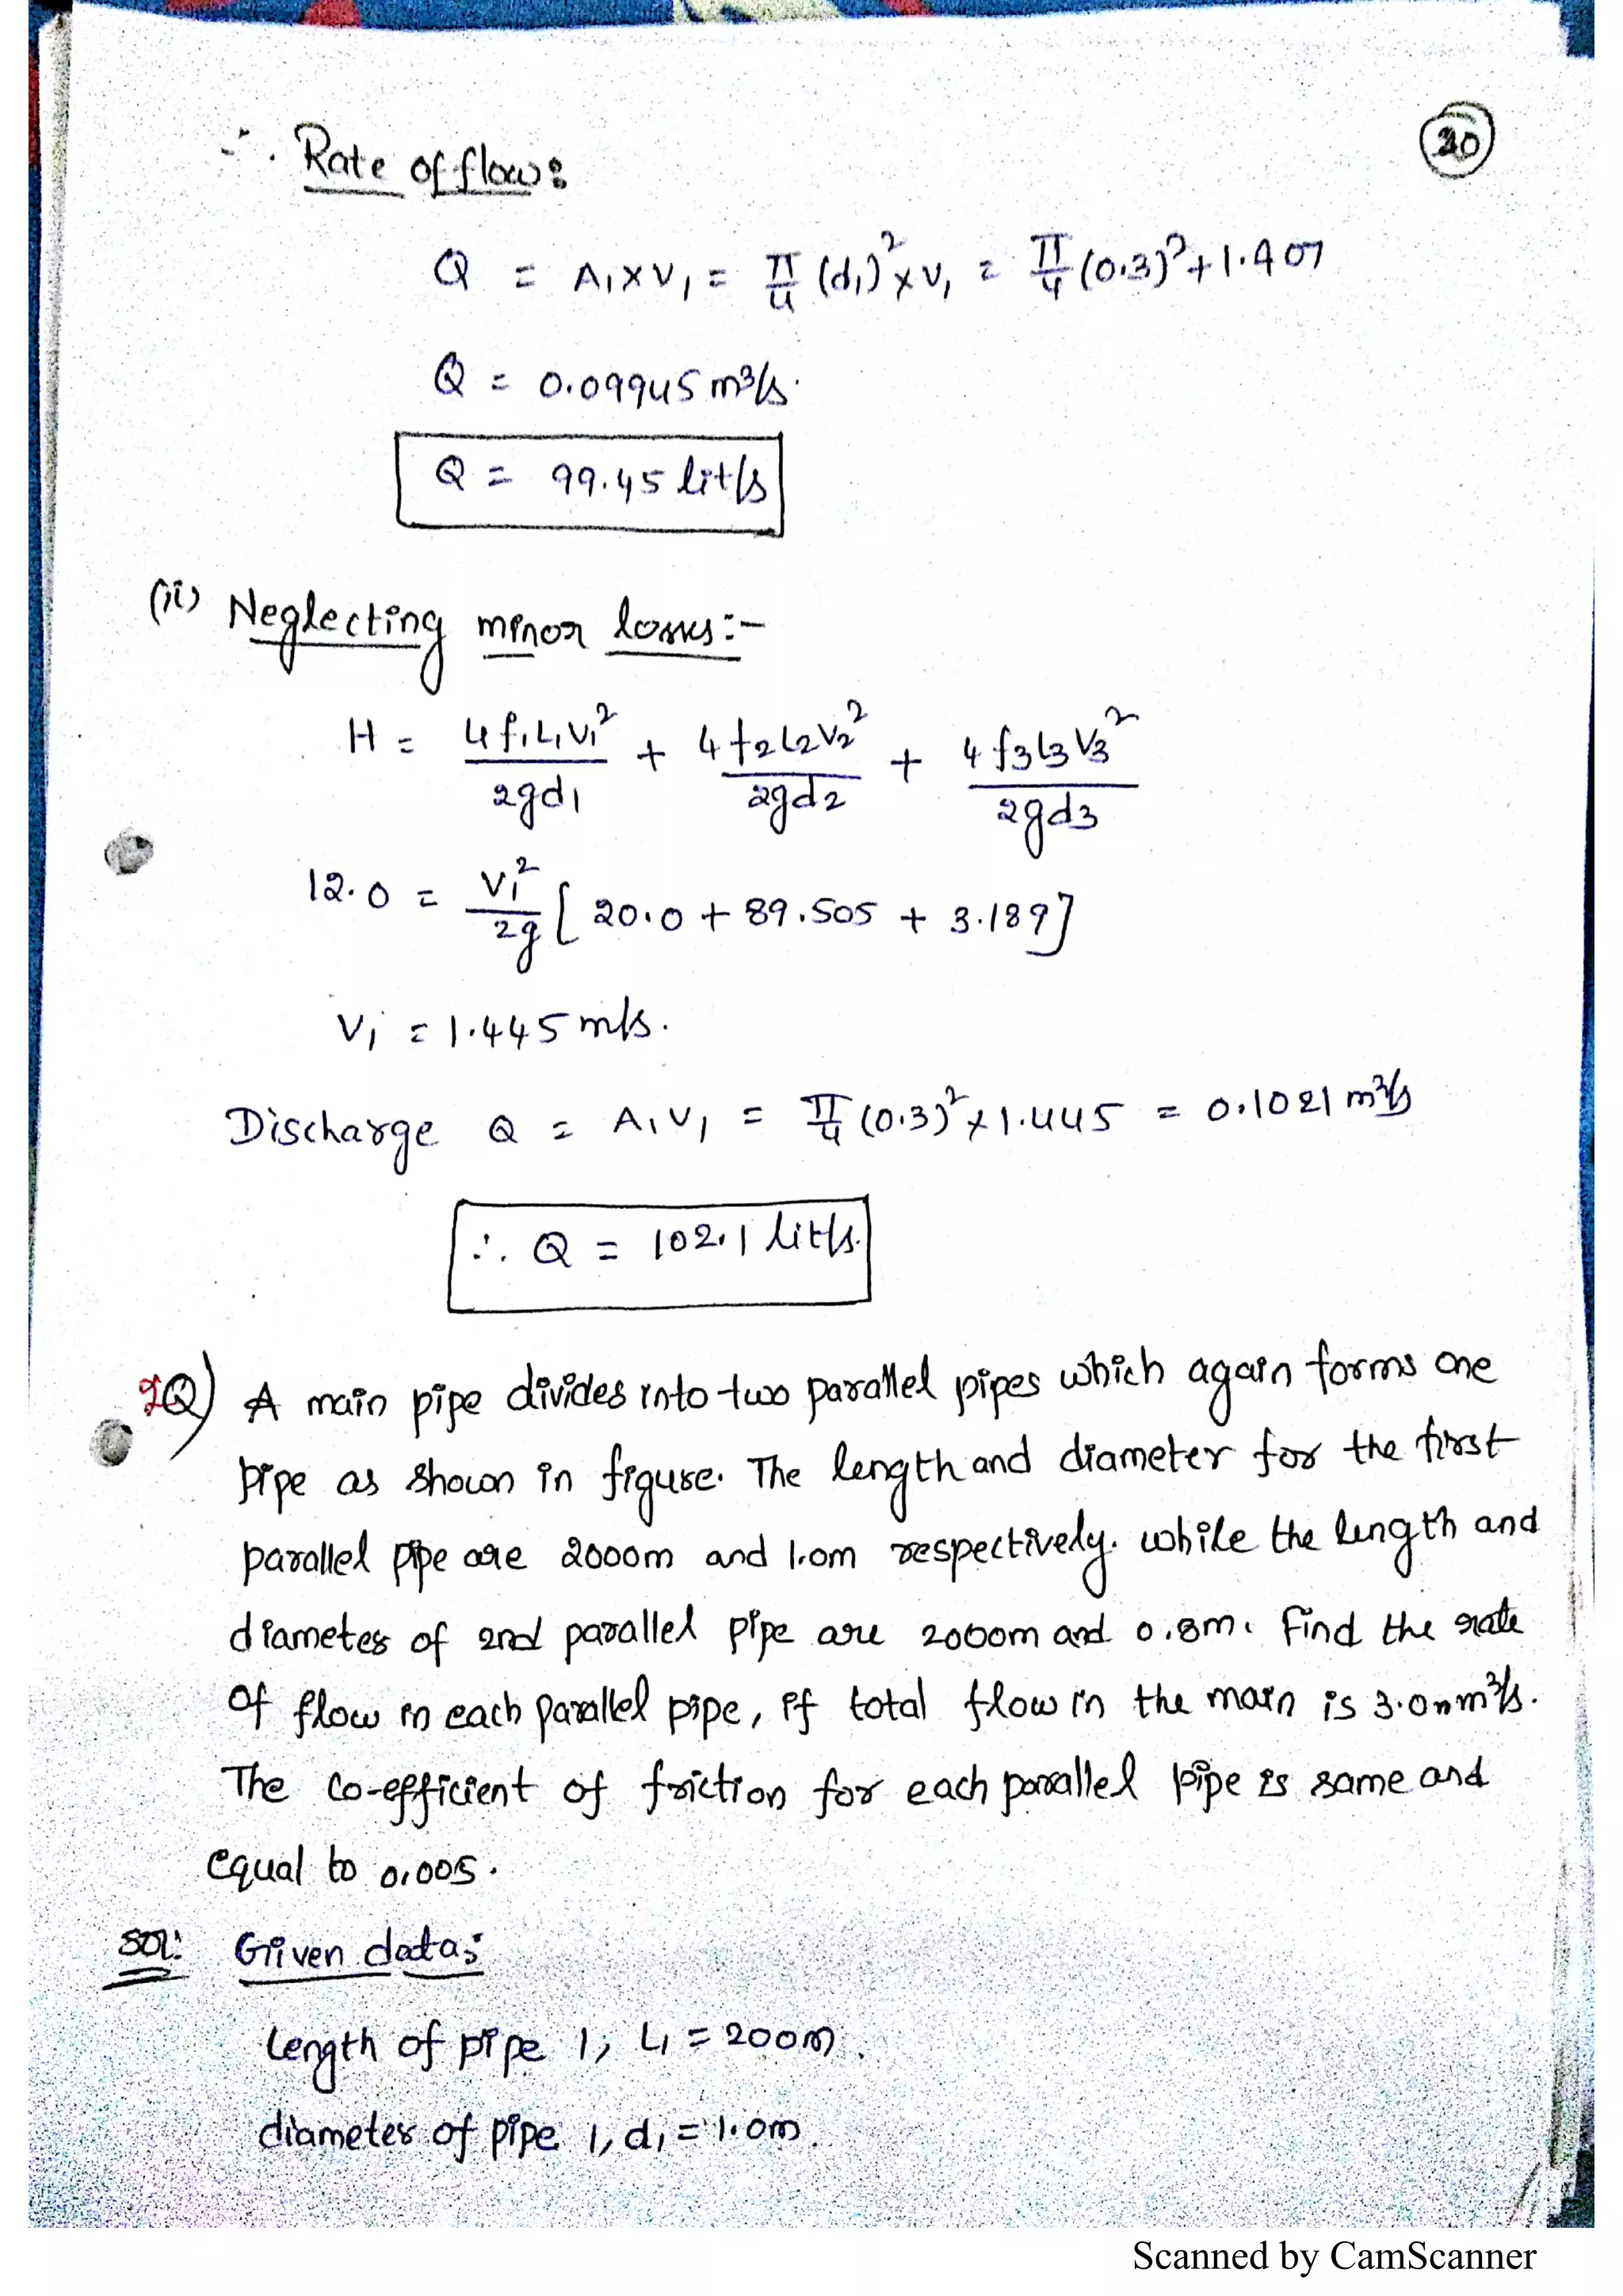 20
∴ Rate of flow:
Q = A₁ x V₁ = π/4 (d₁)² x V₁ = π/4 (0.3)² + 1.407
Q = 0.09945 m³/s.
Q = 99.45 lit/s
(ii) Neglecting minor losses :-
H = 4f₁L₁V₁²/2gd₁ + 4f₂L₂V₂²/2gd₂ + 4f₃L₃V₃²/2gd₃
12.0 = V₁²/2g [20.0 + 89.505 + 3.189]
V₁ = 1.445 m/s.
Discharge Q = A₁V₁ = π/4 (0.3)² x 1.445 = 0.1021 m³/s
∴ Q = 102.1 lit/s.
2Q) A main pipe divides into two parallel pipes which again forms one
pipe as shown in figure. The length and diameter for the first
parallel pipe are 2000m and 1.0m respectively. while the length and
diameter of 2nd parallel pipe are 2000m and 0.8m. Find the rate
of flow in each parallel pipe, if total flow in the main is 3.0 m³/s.
The co-efficient of friction for each parallel pipe is same and
equal to 0.005.
SOL: Given data:
Length of pipe 1, L₁ = 200m.
diameter of pipe 1, d₁ = 1.0m.
Scanned by CamScanner